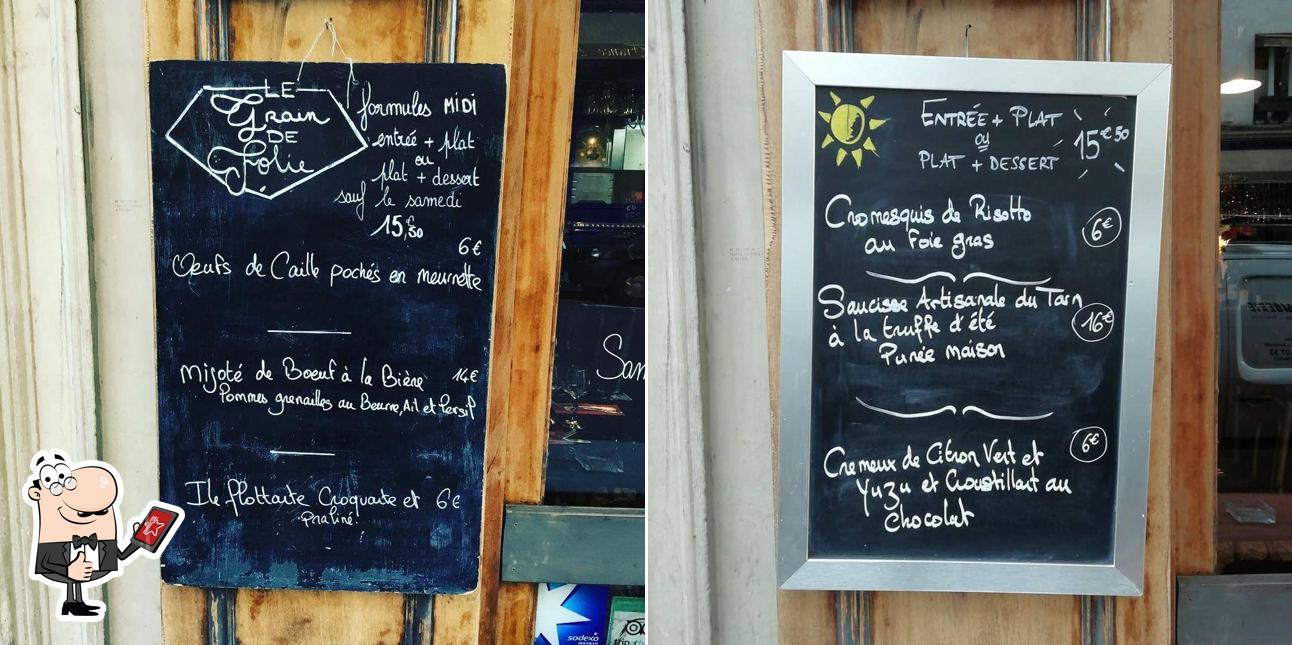 LE
Grain
DE
Folie
formules MIDI
entrée + plat
ou
plat + dessert
sauf le samedi
15,50€
6€
Œufs de Caille pochés en meurette
Mijoté de Boeuf à la Bière 14€
Pommes grenailles au Beurre, Ail et Persil
Ile flottante Croquante et 6€
Praliné.
San
sodexo
ENTRÉE + PLAT
ou
PLAT + DESSERT
15€50
Cromesquis de Risotto
au Foie gras
6€
Saucisse Artisanale du Tarn
à la truffe d'été
Purée maison
16€
6€
Cremeux de Citron Vert et
Yuzu et Croustillant au
Chocolat